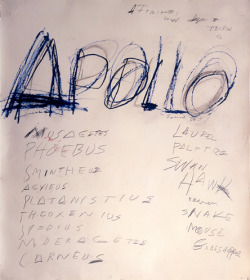 APOLLO
MUSAGETES
PHOEBUS
SMINTHEUS
AGNEUS
PLATANISTIUS
THEOXENIUS
SPODIUS
MODERAGETES
CARNEUS
LAUREL
PALM TREE
SWAN
HAWK
RAVEN
SNAKE
MOUSE
GRASSHOPPER